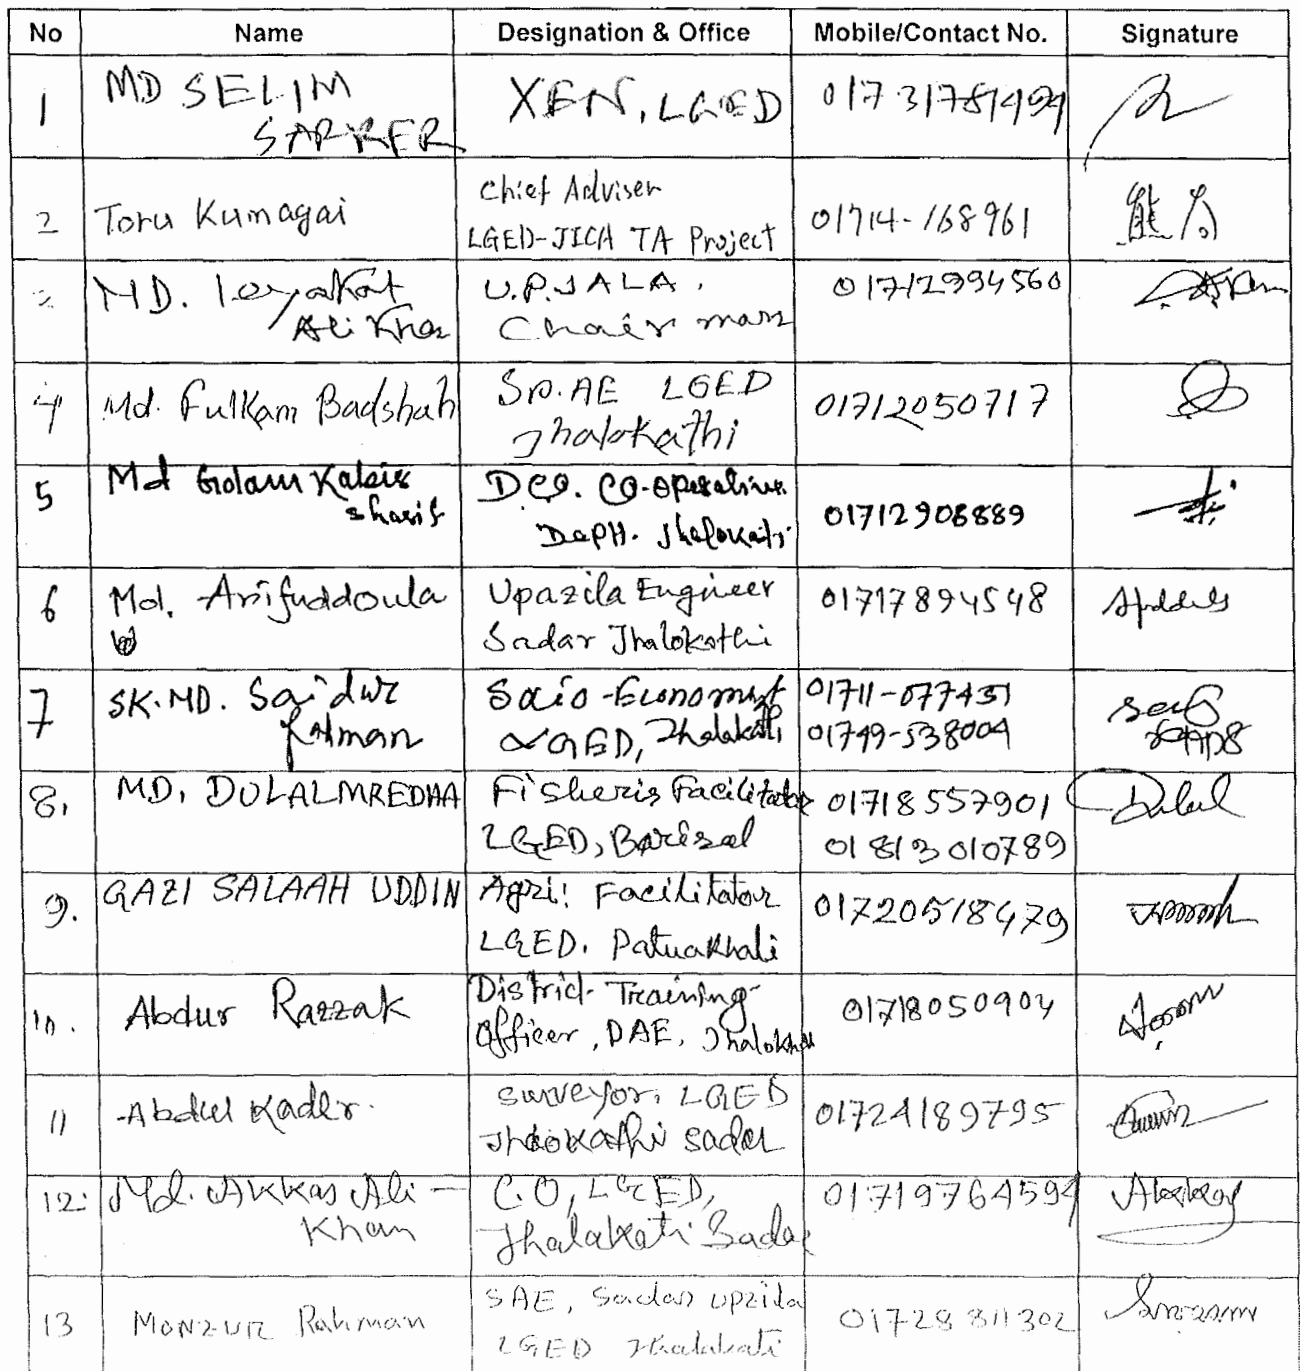 No Name Designation & Office Mobile/Contact No. Signature
1 MD SELIM SARKER XEN, LGED 01731781494
2 Toru Kumagai Chief Adviser LGED-JICA TA Project 01714-168961 熊谷
3 MD. Leyakat Ali Khan U.P.JALA, Chairman 01712994560
4 Md. Fulkam Badshah Sr.AE LGED Jhalokathi 01712050717
5 Md Golam Kabir Sharif DCO. CO-operative Deptt. Jhalokati 01712908889
6 Md. Arifuddoula Upazila Engineer Sadar Jhalokathi 01717894548
7 SK.MD. Saidur Rahman Socio-Economist LGED, Jhalakati 01711-077431 01749-538004
8. MD. DULALMREDHA Fisheris Facilitator LGED, Barisal 01718557901 01813010789 Dulal
9. GAZI SALAAH UDDIN Agri: Facilitator LGED. Patuakhali 01720518479
10. Abdur Razzak District Training Officer, DAE, Jhalokhati 01718050904
11 Abdul Kader. Surveyor, LGED Jhalokathi sadar 01724189795
12. Md. Akkas Ali Khan C.O, LGED, Jhalakati Sadar 01719764594 Akkas
13 MONZUR Rahman SAE, Sadar upzila LGED Jhalakati 01728811302